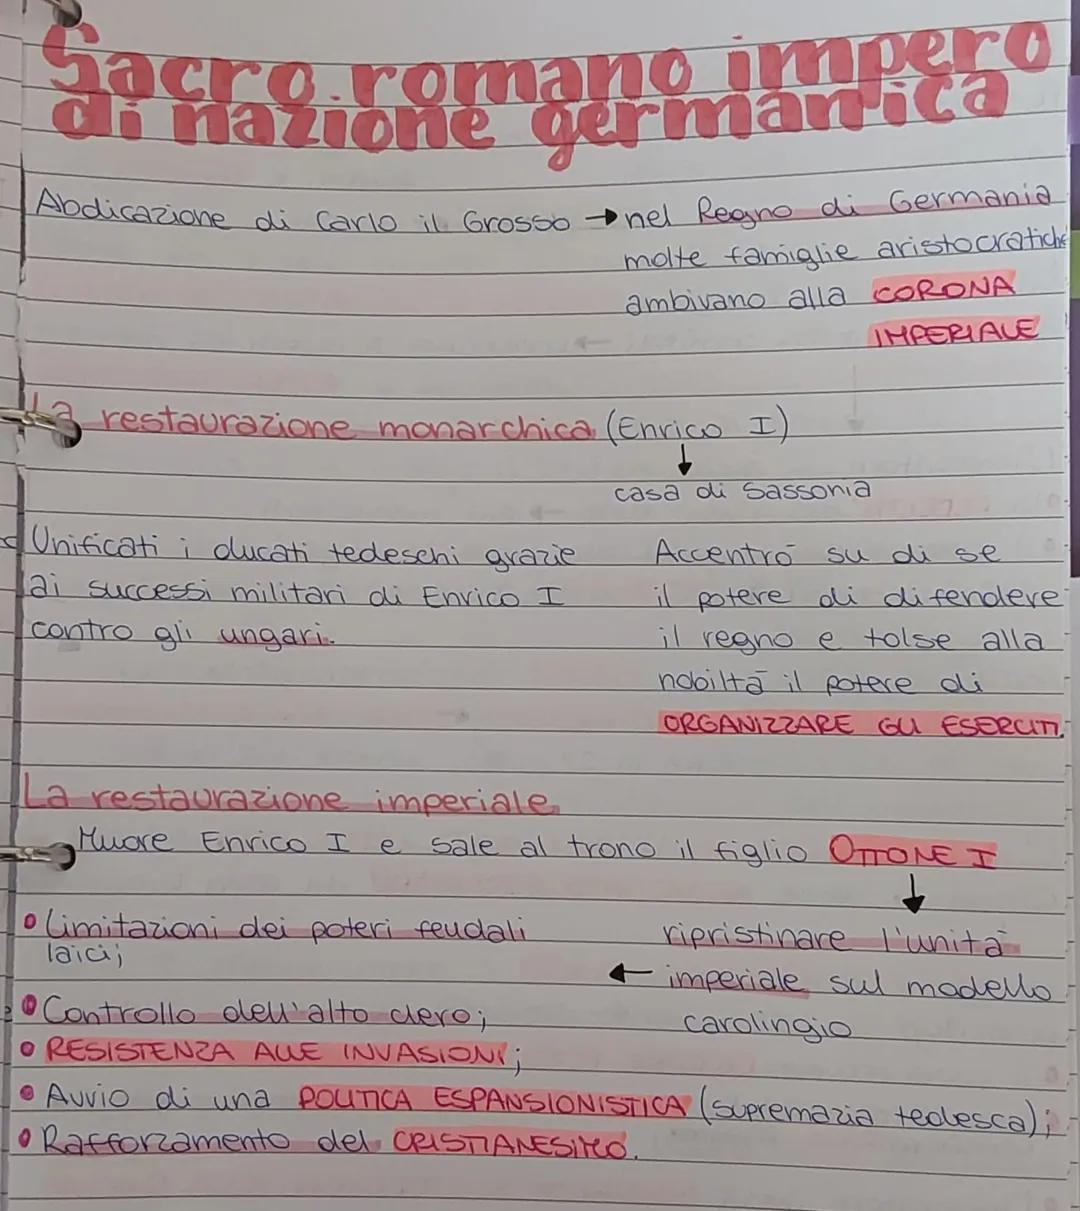 Sacro romano impero
di nazione germanica
Abdicazione di Carlo il Grosso → nel Regno di Germania
molte famiglie aristocratiche
ambivano alla CORONA
IMPERIALE
La restaurazione monarchica (Enrico I)
↓
casa di Sassonia
Unificati i ducati tedeschi grazie
ai successi militari di Enrico I
contro gli ungari.
Accentrò su di se
il potere di difendere
il regno e tolse alla
nobiltà il potere di
ORGANIZZARE GLI ESERCITI.
La restaurazione imperiale
Muore Enrico I e sale al trono il figlio OTTONE I
↓
ripristinare l'unità
← imperiale sul modello
carolingio
• Limitazioni dei poteri feudali
laici;
• Controllo dell'alto clero;
• RESISTENZA ALLE INVASIONI;
• Avvio di una POLITICA ESPANSIONISTICA (supremazia tedesca);
• Rafforzamento del CRISTIANESIMO.